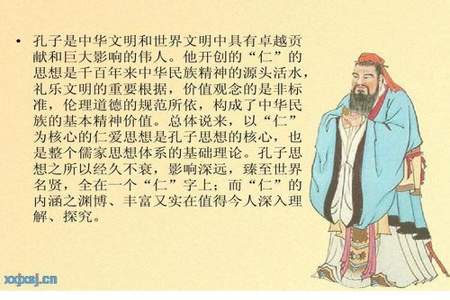 • 孔子是中华文明和世界文明中具有卓越贡
献和巨大影响的伟人。他开创的“仁”的
思想是千百年来中华民族精神的源头活水，
礼乐文明的重要根据，价值观念的是非标
准，伦理道德的规范所依，构成了中华民
族的基本精神价值。总体说来，以“仁”
为核心的仁爱思想是孔子思想的核心，也
是整个儒家思想体系的基础理论。孔子思
想之所以经久不衰，影响深远，臻至世界
名贤，全在一个“仁”字上；而“仁”的
内涵之渊博、丰富又实在值得今人深入理
解、探究。